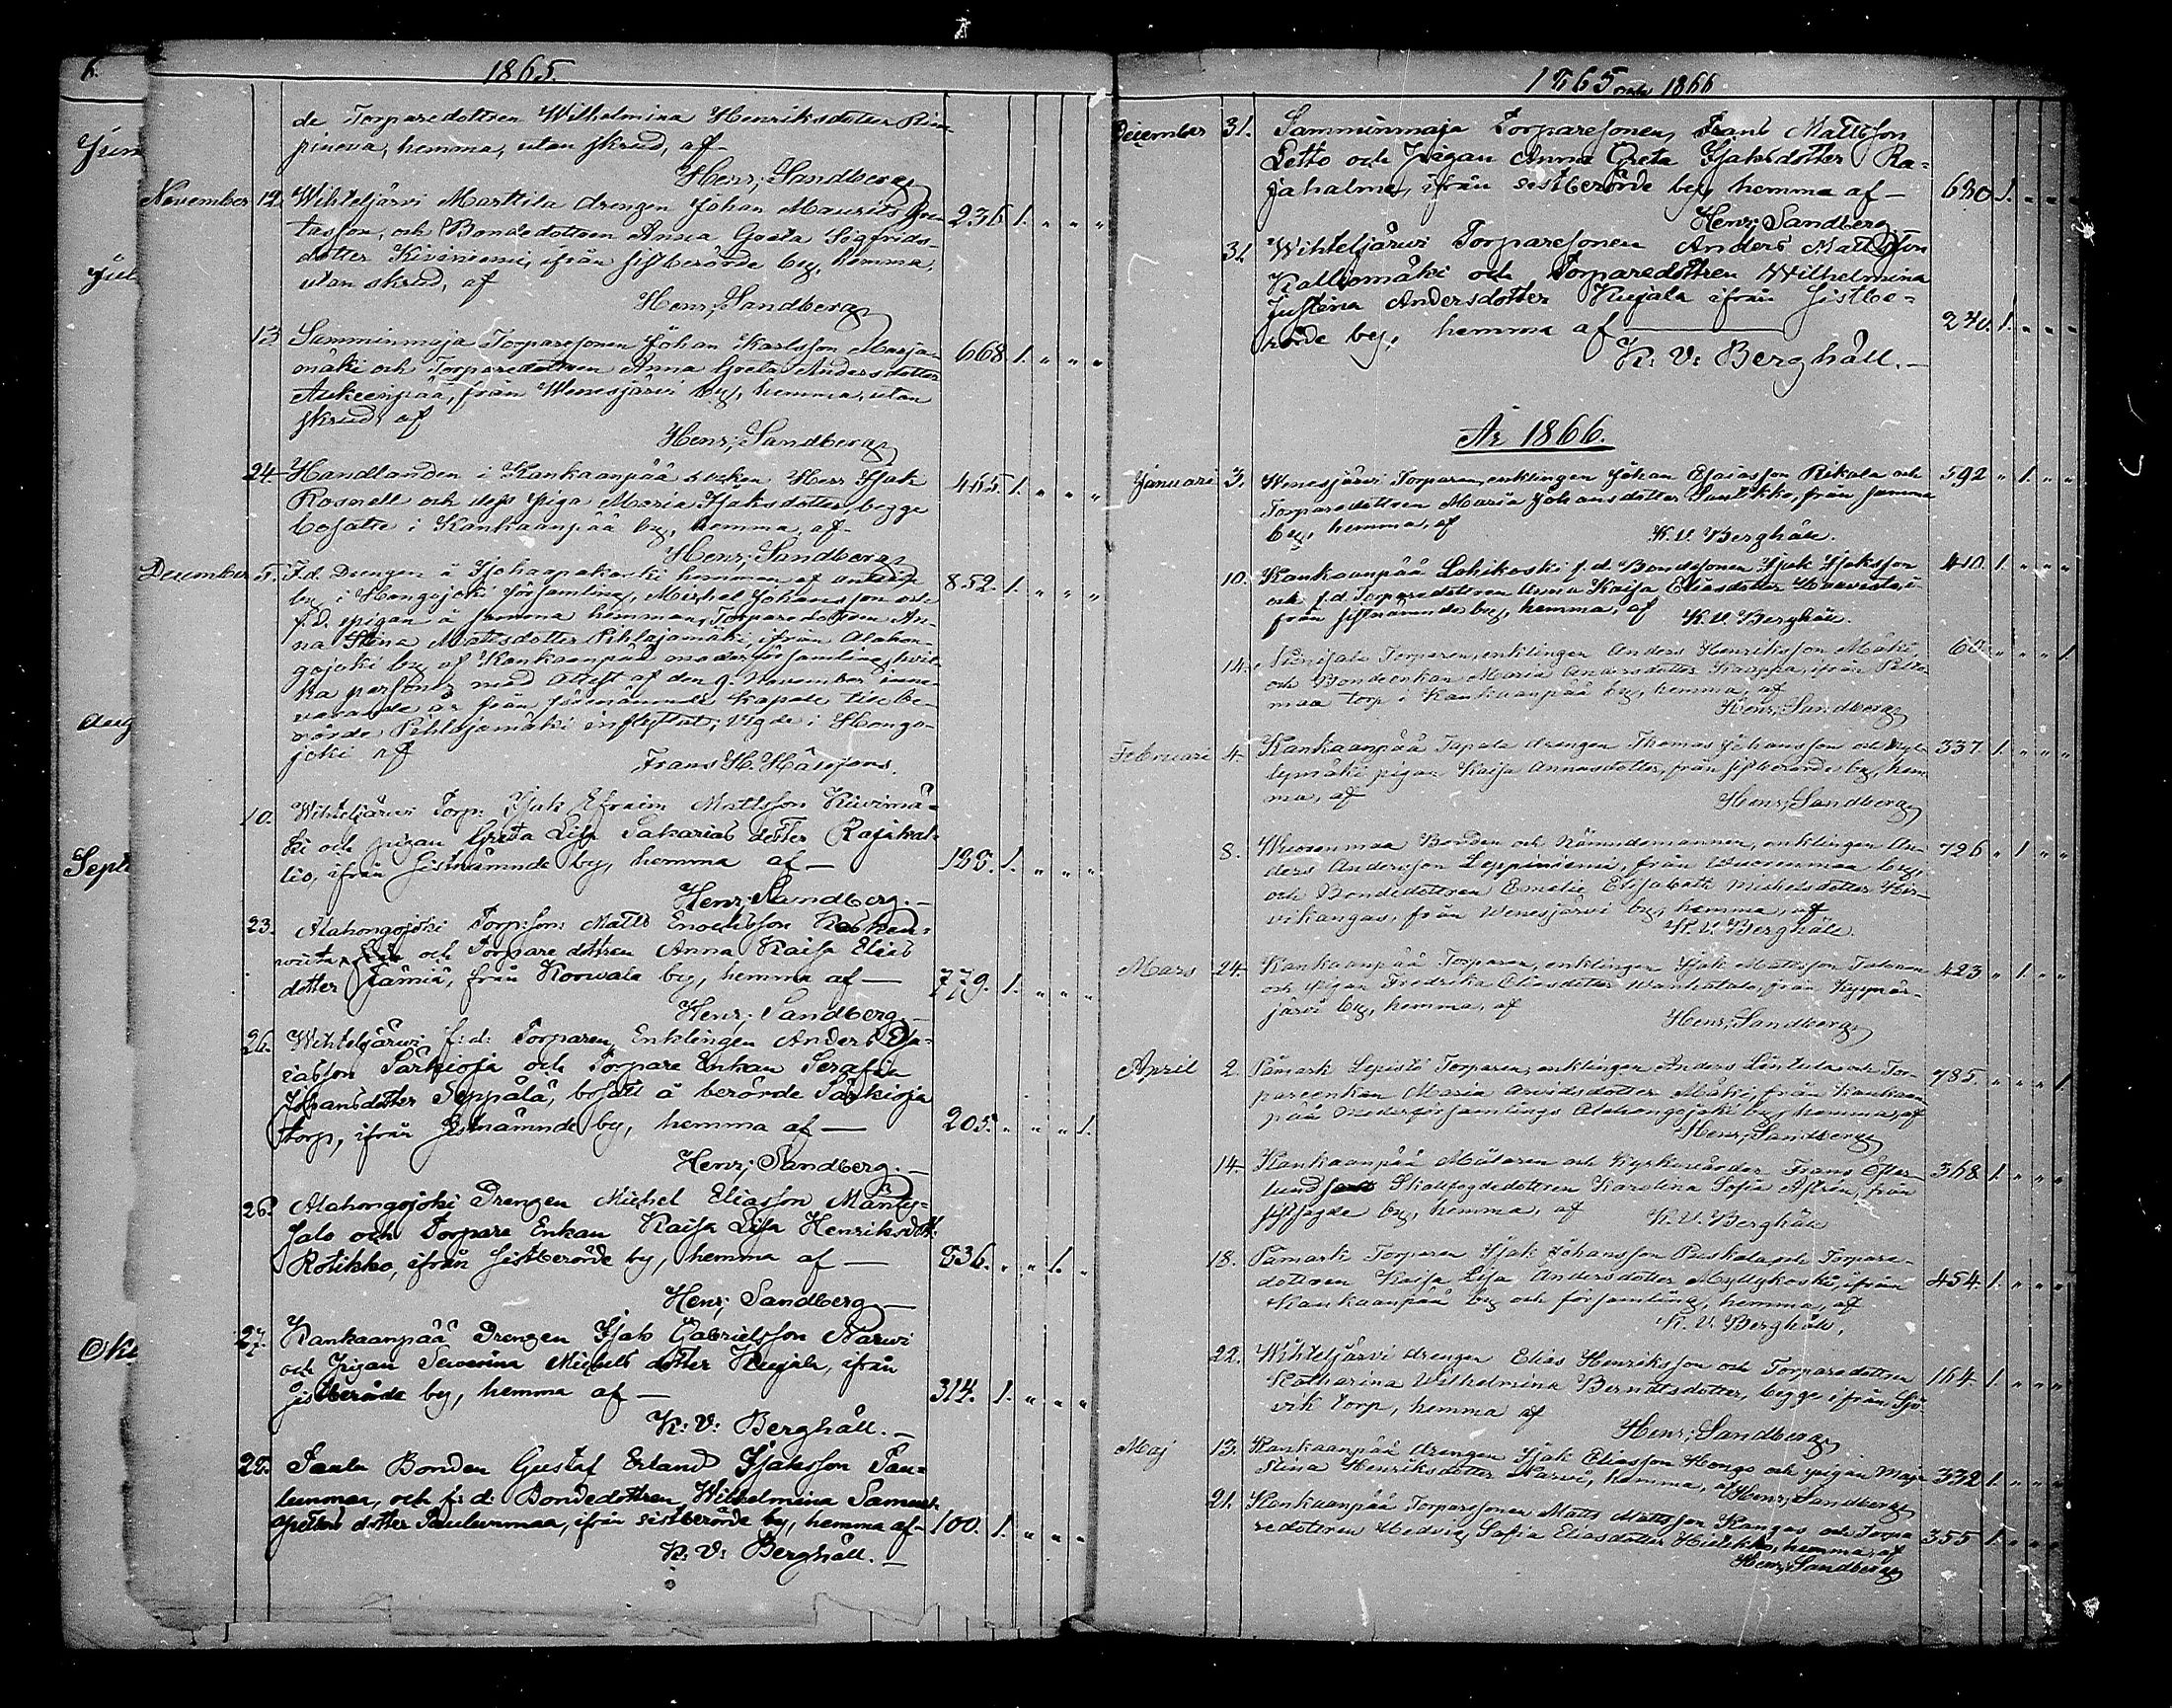 1865.
de Torparedottren Wilhelmina Henriksdotter Rim-
pineva, hemma, utan skrud, af
Henr; Sandberg
November 12. Wihteljärvi Marttila drengen Johan Maurits
tasson, och Bondedottren Anna Greta Sigfrids-
dotter Kiviniemi, ifrån sistberörde by, hemma, 236 1. " " "
utan skrud, af
Henr; Sandberg
13. Samminmaja Torparesonen Johan Karlsson Marja-
mäki och Torparedottren Anna Greta Andersdotter 668 1. " " "
från Wenesjärvi by, hemma, utan
skrud, af
Henr; Sandberg
24. Handlanden i Kankaanpää socken Herr Isak
Rosnell och dess piga Maria Isaksdotter, begge 465. 1. " " "
bosatte i Kankaanpää by, hemma, af
Henr; Sandberg
December 5. F.d. Drengen å hemman af
by i Hongojoki församling, Michel Johansson och 852. 1. " " "
f.d. pigan å samma hemman, Torparedottren An-
na Stina Mattsdotter Pihlajamäki, ifrån Alahon-
gojoki by af Kankaanpää moderförsamling, hvil-
ka personer med attest af den 9. November inne-
varande år från förenämnde kapell till be-
rörde Pihlajamäki inflyttat; vigde i Hongo-
joki af
Frans H.
10. Wihteljärvi Torp: Isak Efraim Mattsson Kivimä-
ki och pigan Greta Lisa Sakarias dotter Rajakal-
lio, ifrån sistnämnde by, hemma af — 1. " " "
Henr; Sandberg. —
23. Alahongojoki Torp:son: Matts Enocksson Koskan-
och Torpare dottren Anna Kaisa Elias
dotter Jämiä, från Korwala by, hemma af — 779. 1. " " "
Henr; Sandberg. —
26. Wihteljärvi f:d: Torparen, Enklingen Anders Esa-
iasson Särkioja och Torpare Enkan Serafia
Johansdotter Seppälä, bosatt å berörde Särkioja
torp, ifrån sistnämnde by, hemma af — 205. " " " 1.
Henr; Sandberg. —
26. Alahongojoki Drengen Michel Eliasson Mänty-
salo och Torpare Enkan Kaisa Lisa Henriksdott.
Rotikko, ifrån sistberörde by, hemma af — 836. " " 1. "
Henr; Sandberg —
27. Kankaanpää Drengen Isak Gabrielsson Narwi
och pigan Sewerina Michels dotter Kujala, ifrån
sistberörde by, hemma af — 314. 1. " " "
K: V: Berghäll. —
28. Bonden Gustaf Erland Isaksson
och f: d: Bondedottren, Wilhelmina
dotter ifrån sistberörde by, hemma af — 100. 1. " " "
K: V: Berghäll. —
1865 och 1866
December 31. Samminmaja Torparesonen, Frans Mattsson
Letto och pigan Anna Greta Isaksdotter Ra-
jahalme, ifrån sistberörde by, hemma af — 680 1. " " "
Henr; Sandberg
31. Wihteljärvi Torparesonen Anders Mattsson
Kalliomäki och Torparedottren Wilhelmina
Justina Andersdotter Kujala ifrån sistbe-
rörde by, hemma af — 240. 1. " " "
K: V: Berghäll. —
År 1866.
Januari 3. Wenesjärvi Torparen, enklingen Johan Esaiasson Rikala och 592 " 1. " "
Torparedottren Maria Johansdotter Santikko, från samma
by, hemma, af
K. V. Berghäll.
10. Kankaanpää Lohikoski f.d. Bondesonen Isak Isaksson 410. 1. " " "
och f.d. Torparedottren Anna Kaisa Eliasdotter
från sistnämnde by, hemma, af K. V. Berghäll.
14. Niinisalo Torparen, enklingen Anders Henriksson Mäki, 60. " " " 1.
och Bondeenkan Maria Andersdotter Kaappa, ifrån
maa torp i Kankaanpää by, hemma, af
Henr; Sandberg
Februari 4. Kankaanpää Tapala drengen Thomas Johansson och 337 1. " " "
pigan Kaisa Annasdotter, från sistberörde by, hem-
ma, af
Henr; Sandberg
8. Wuorenmaa Bonden och Nämndemannen, enklingen An- 726 " 1. " "
ders Andersson Leppiniemi, från Wuorenmaa by,
och Bondedottren Emelie Elisabeth Michelsdotter Hir-
vikangas, från Wenesjärvi by, hemma, af
K. V. Berghäll.
Mars 24. Kankaanpää Torparen, enklingen Isak Mattsson 423 " 1. " "
och pigan Fredrika Eliasdotter från Kyynär-
järvi by, hemma, af
Henr; Sandberg
April 2. Påmark Lepistö Torparen, enklingen Anders och Tor- 785. " " " 1.
pareenkan Maria Arvidsdotter Mäki, från Kankaan-
pää Moderförsamlings Alahongojoki by, hemma, af
Henr; Sandberg
14. Kankaanpää Målaren och Kyrkovärden Frans Öster- 368 1. " " "
lund samt Skallfogdedottren Karolina Sofia från
sistsagde by, hemma, af K. V. Berghäll
18. Påmark Torparen Isak Johansson Puskala och Torpare-
dottren Kaisa Lisa Andersdotter Myllykoski, ifrån 454. 1. " " "
Kankaanpää by och församling, hemma, af
K. V. Berghäll.
22. Wihteljärvi drengen Elias Henriksson och Torparedottren 164. 1. " " "
Katharina Wilhelmina Berndtsdotter, begge ifrån Sjö-
vik torp, hemma af
Henr; Sandberg
Maj 13. Kankaanpää drengen Isak Eliasson Hongo och pigan Maja 332 1. " " "
Stina Henriksdotter Narvi, hemma, af Henr; Sandberg
21. Kankaanpää Torparesonen Matts Mattsson Kangas och Torpa-
redottren Hedvig Sofia Eliasdotter Hietikko, hemma, af 355 1. " " "
Henr; Sandberg